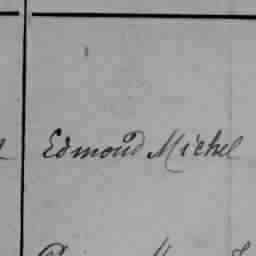 Edmond Michel